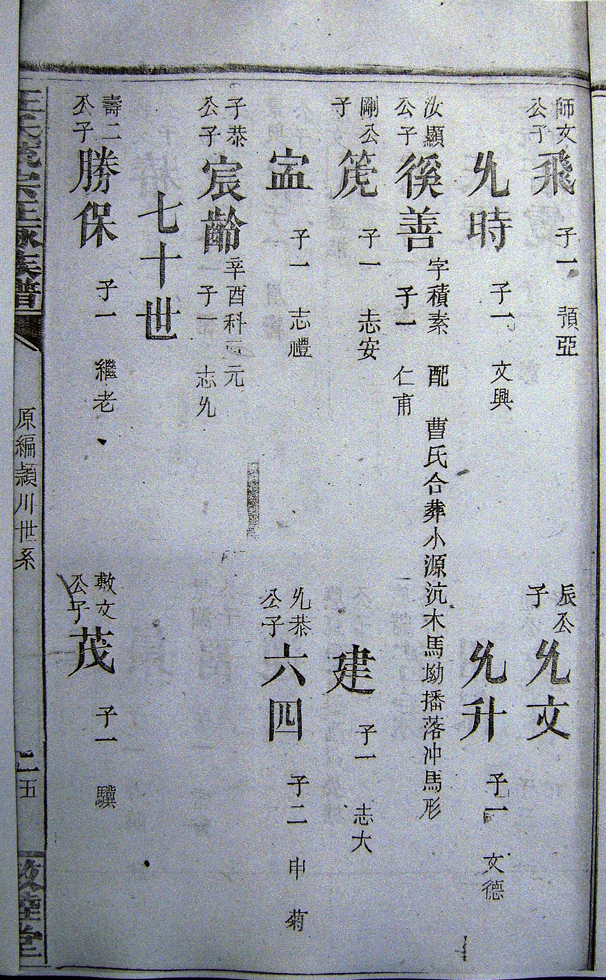 師文公子 飛 子一 預亞
辰公子 允文
允時 子一 文興
允升 子一 文德
汝顯公子 後善 字積素 配 曹氏合葬小源沆木馬坳播落冲馬形 子一 仁甫
剛公子 笎 子一 志安
建 子一 志大
盂 子一 志禮
允恭公子 六四 子二 申 菊
子恭公子 宸齡 辛酉科 元 子一 志允
七十世
壽二公子 勝保 子一 繼老
敷文公子 茂 子一 驥
族譜
原編潁川世系
二五
敦睦堂